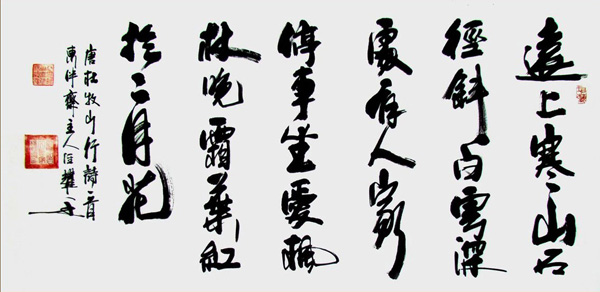 遠上寒山石
徑斜白雲深
處有人家
停車坐愛楓
林晚霜葉紅
於二月花
唐杜牧山行詩一首
齋主人